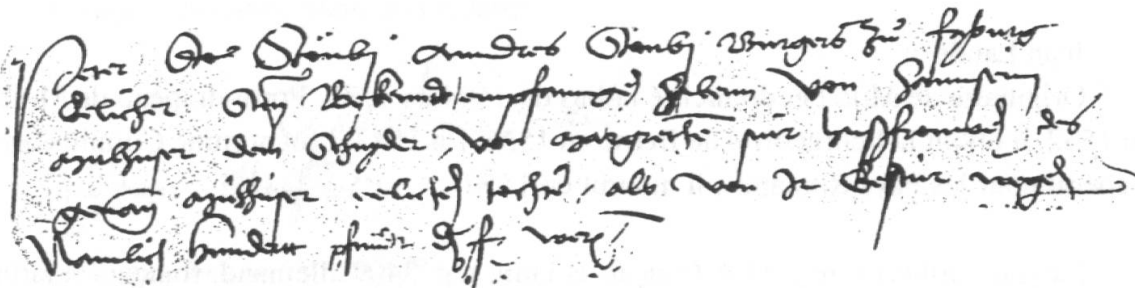 Peter Stöubj Anndres Stöubj Burgers zů fryburg
elicher Sun Bekennd / empfanngen haben von Hannsenn
mülhuser dem Schnyder / von margrethe siner husfrouwen des
genan mülhuser eelichen tochter / als von Ir Eestür wegen
Namlich hundert pfund d f wer /